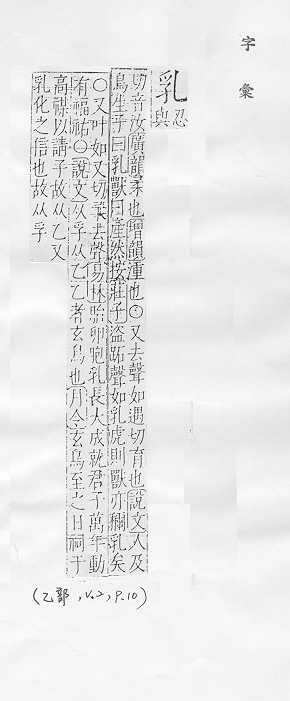 字彙
乳 忍與
切音汝廣韻柔也增韻湩也○又去聲如遇切育也說文人及
鳥生子曰乳獸曰產然按莊子盜跖聲如乳虎則獸亦稱乳矣
○又叶如又切柔去聲易林胎卵胞乳長大成就君子萬年動
有福祐○說文从孚从乙乙者玄鳥也月令玄鳥至之日祠于
高禖以請子故从乙又
乳化之信也故从孚
(乙部, V.2, P.10)